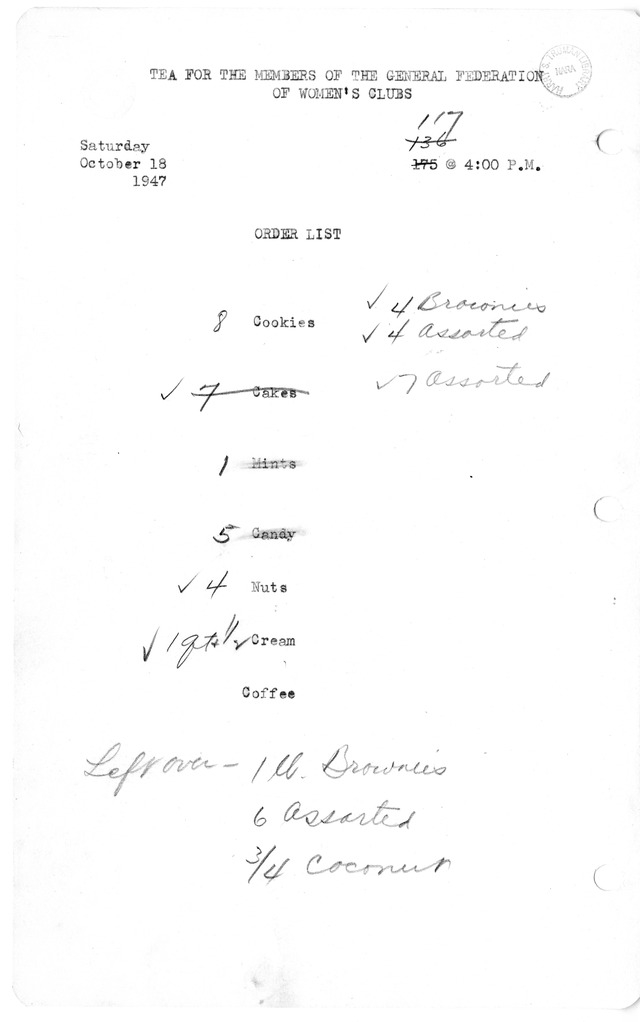 TEA FOR THE MEMBERS OF THE GENERAL FEDERATION
OF WOMEN'S CLUBS
HARRY S. TRUMAN LIBRARY
117
136
Saturday
October 18
1947
175 @ 4:00 P.M.
ORDER LIST
✓ 4 Brownies
8 Cookies
✓ 4 Assorted
✓ 7 Cakes
✓ 7 Assorted
1 Mints
5 Candy
✓ 4 Nuts
✓ 1 qt Cream
Coffee
Left over - 1 lb. Brownies
6 Assorted
3/4 Coconut